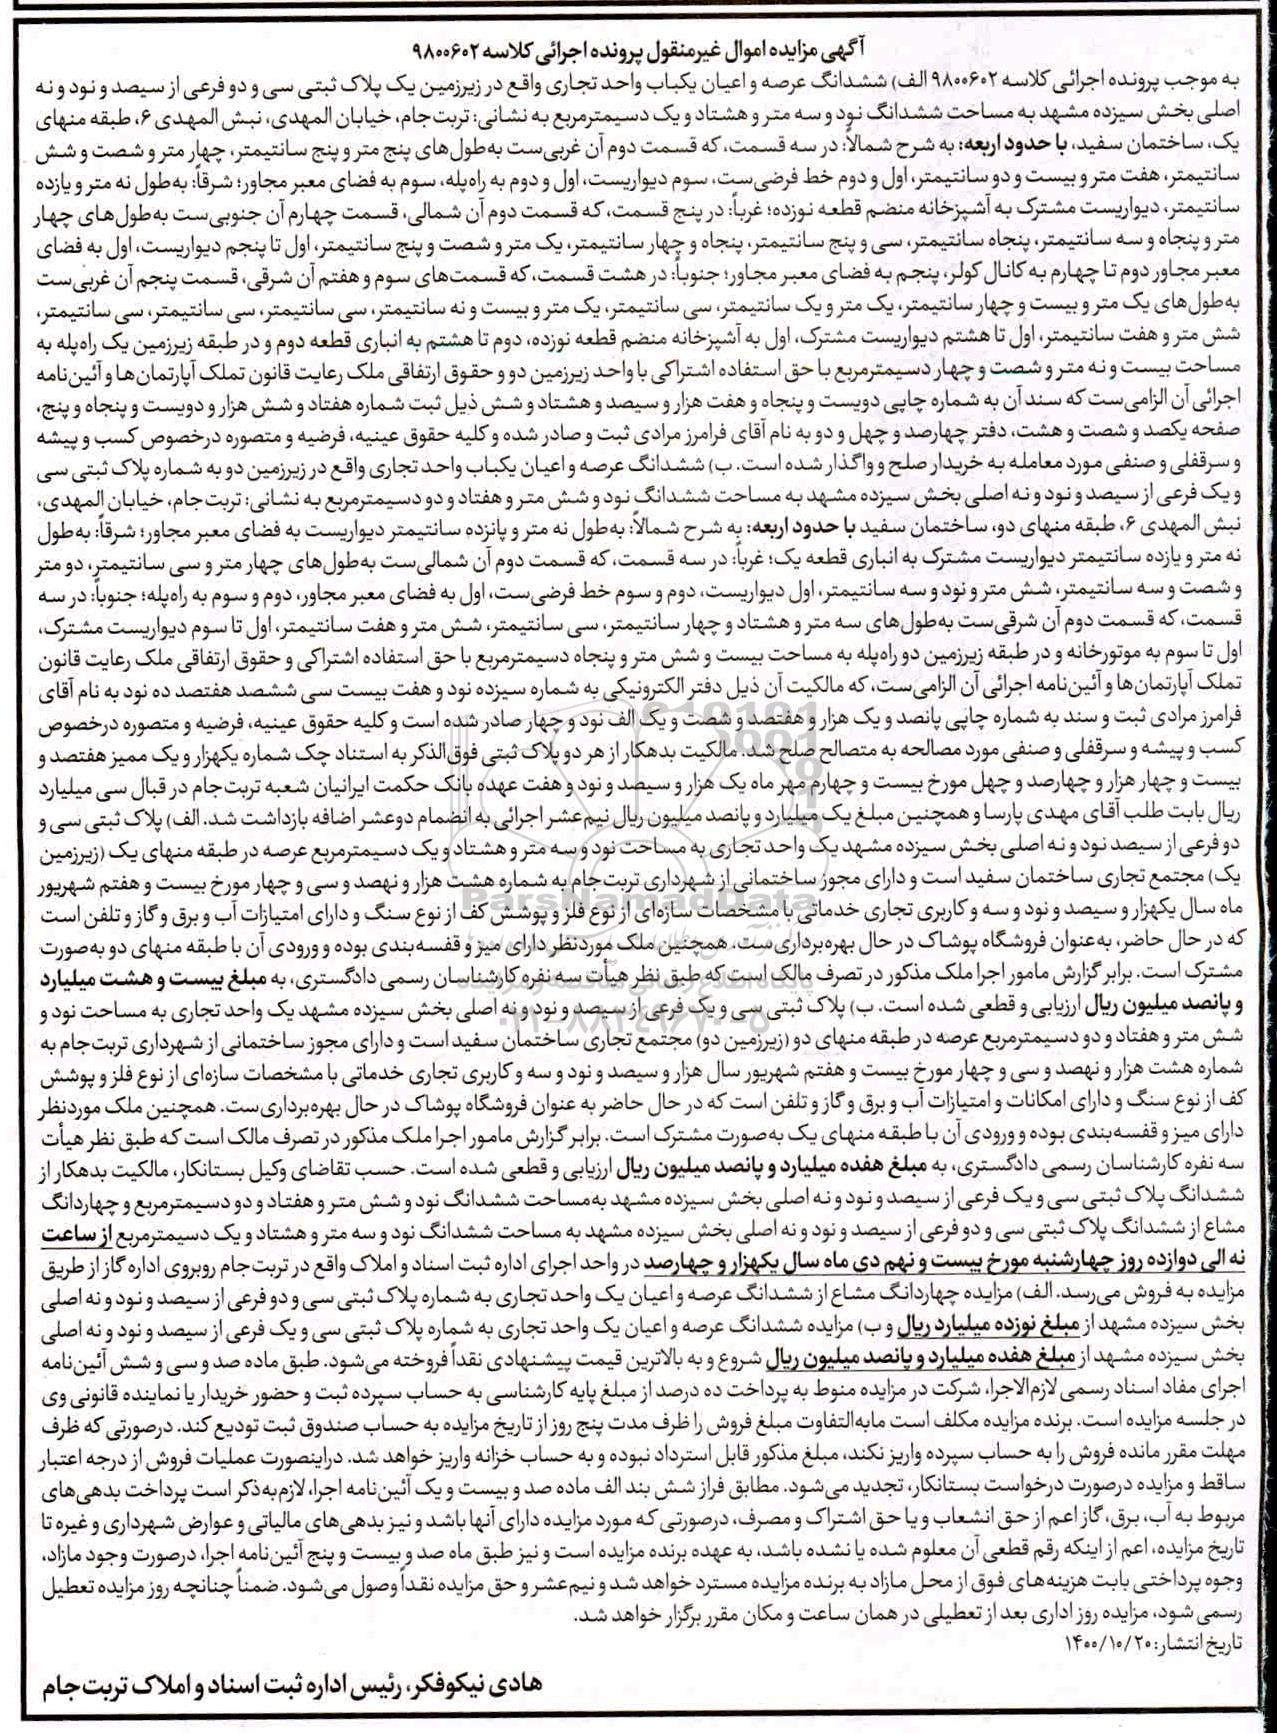 آگهی مزایده اموال غیرمنقول پرونده اجرائی کلاسه ۹۸۰۰۶۰۲
به موجب پرونده اجرائی کلاسه ۹۸۰۰۶۰۲ الف) ششدانگ عرصه و اعیان یکباب واحد تجاری واقع در زیرزمین یک پلاک ثبتی سی و دو فرعی از سیصد و نود و نه
اصلی بخش سیزده مشهد به مساحت ششدانگ نود و سه متر و هشتاد و یک دسیمترمربع به نشانی: تربت‌جام، خیابان المهدی، نبش المهدی ۶، طبقه منهای
یک، ساختمان سفید، با حدود اربعه: به شرح شمالاً: در سه قسمت، که قسمت دوم آن غربی‌ست به‌طول‌های پنج متر و پنج سانتیمتر، چهار متر و شصت و شش
سانتیمتر، هفت متر و بیست و دو سانتیمتر، اول و دوم خط فرضی‌ست، سوم دیواریست، اول و دوم به راه‌پله، سوم به فضای معبر مجاور؛ شرقاً: به‌طول نه متر و یازده
سانتیمتر، دیواریست مشترک به آشپزخانه منضم قطعه نوزده؛ غرباً: در پنج قسمت، که قسمت دوم آن شمالی، قسمت چهارم آن جنوبی‌ست به‌طول‌های چهار
متر و پنجاه و سه سانتیمتر، پنجاه سانتیمتر، سی و پنج سانتیمتر، پنجاه و چهار سانتیمتر، یک متر و شصت و پنج سانتیمتر، اول تا پنجم دیواریست، اول به فضای
معبر مجاور دوم تا چهارم به کانال کولر، پنجم به فضای معبر مجاور؛ جنوباً: در هشت قسمت، که قسمت‌های سوم و هفتم آن شرقی، قسمت پنجم آن غربی‌ست
به‌طول‌های یک متر و بیست و چهار سانتیمتر، یک متر و یک سانتیمتر، سی سانتیمتر، یک متر و بیست و نه سانتیمتر، سی سانتیمتر، سی سانتیمتر، سی سانتیمتر،
شش متر و هفت سانتیمتر، اول تا هشتم دیواریست مشترک، اول به آشپزخانه منضم قطعه نوزده، دوم تا هشتم به انباری قطعه دوم و در طبقه زیرزمین یک راه‌پله به
مساحت بیست و نه متر و شصت و چهار دسیمترمربع با حق استفاده اشتراکی با واحد زیرزمین دو و حقوق ارتفاقی ملک رعایت قانون تملک آپارتمان‌ها و آئین‌نامه
اجرائی آن الزامی‌ست که سند آن به شماره چاپی دویست و پنجاه و هفت هزار و سیصد و هشتاد و شش ذیل ثبت شماره هفتاد و شش هزار و دویست و پنجاه و پنج،
صفحه یکصد و شصت و هشت، دفتر چهارصد و چهل و دو به نام آقای فرامرز مرادی ثبت و صادر شده و کلیه حقوق عینیه، فرضیه و متصوره درخصوص کسب و پیشه
و سرقفلی و صنفی مورد معامله به خریدار صلح و واگذار شده است. ب) ششدانگ عرصه و اعیان یکباب واحد تجاری واقع در زیرزمین دو به شماره پلاک ثبتی سی
و یک فرعی از سیصد و نود و نه اصلی بخش سیزده مشهد به مساحت ششدانگ نود و شش متر و هفتاد و دو دسیمترمربع به نشانی: تربت‌جام، خیابان المهدی،
نبش المهدی ۶، طبقه منهای دو، ساختمان سفید با حدود اربعه: به شرح شمالاً: به‌طول نه متر و پانزده سانتیمتر دیواریست به فضای معبر مجاور؛ شرقاً: به‌طول
نه متر و یازده سانتیمتر دیواریست مشترک به انباری قطعه یک؛ غرباً: در سه قسمت، که قسمت دوم آن شمالی‌ست به‌طول‌های چهار متر و سی سانتیمتر، دو متر
و شصت و سه سانتیمتر، شش متر و نود و سه سانتیمتر، اول دیواریست، دوم و سوم خط فرضی‌ست، اول به فضای معبر مجاور، دوم و سوم به راه‌پله؛ جنوباً: در سه
قسمت، که قسمت دوم آن شرقی‌ست به‌طول‌های سه متر و هشتاد و چهار سانتیمتر، سی سانتیمتر، شش متر و هفت سانتیمتر، اول تا سوم دیواریست مشترک،
اول تا سوم به موتورخانه و در طبقه زیرزمین دو راه‌پله به مساحت بیست و شش متر و پنجاه دسیمترمربع با حق استفاده اشتراکی و حقوق ارتفاقی ملک رعایت قانون
تملک آپارتمان‌ها و آئین‌نامه اجرائی آن الزامی‌ست، که مالکیت آن ذیل دفتر الکترونیکی به شماره سیزده نود و هفت بیست سی ششصد هفتصد ده نود به نام آقای
فرامرز مرادی ثبت و سند به شماره چاپی پانصد و یک هزار و هفتصد و شصت و یک الف نود و چهار صادر شده است و کلیه حقوق عینیه، فرضیه و متصوره درخصوص
کسب و پیشه و سرقفلی و صنفی مورد مصالحه به متصالح صلح شد. مالکیت بدهکار از هر دو پلاک ثبتی فوق‌الذکر به استناد چک شماره یکهزار و یک ممیز هفتصد و
بیست و چهار هزار و چهارصد و چهل مورخ بیست و چهارم مهر ماه یک هزار و سیصد و نود و هفت عهده بانک حکمت ایرانیان شعبه تربت‌جام در قبال سی میلیارد
ریال بابت طلب آقای مهدی پارسا و همچنین مبلغ یک میلیارد و پانصد میلیون ریال نیم‌عشر اجرائی به انضمام دوعشر اضافه بازداشت شد. الف) پلاک ثبتی سی و
دو فرعی از سیصد نود و نه اصلی بخش سیزده مشهد یک واحد تجاری به مساحت نود و سه متر و هشتاد و یک دسیمترمربع عرصه در طبقه منهای یک (زیرزمین
یک) مجتمع تجاری ساختمان سفید است و دارای مجوز ساختمانی از شهرداری تربت‌جام به شماره هشت هزار و نهصد و سی و چهار مورخ بیست و هفتم شهریور
ماه سال یکهزار و سیصد و نود و سه و کاربری تجاری خدماتی با مشخصات سازه‌ای از نوع فلز و پوشش کف از نوع سنگ و دارای امتیازات آب و برق و گاز و تلفن است
که در حال حاضر، به‌عنوان فروشگاه پوشاک در حال بهره‌برداری‌ست. همچنین ملک موردنظر دارای میز و قفسه‌بندی بوده و ورودی آن با طبقه منهای دو به‌صورت
مشترک است. برابر گزارش مامور اجرا ملک مذکور در تصرف مالک است که طبق نظر هیأت سه نفره کارشناسان رسمی دادگستری، به مبلغ بیست و هشت میلیارد
و پانصد میلیون ریال ارزیابی و قطعی شده است. ب) پلاک ثبتی سی و یک فرعی از سیصد و نود و نه اصلی بخش سیزده مشهد یک واحد تجاری به مساحت نود و
شش متر و هفتاد و دو دسیمترمربع عرصه در طبقه منهای دو (زیرزمین دو) مجتمع تجاری ساختمان سفید است و دارای مجوز ساختمانی از شهرداری تربت‌جام به
شماره هشت هزار و نهصد و سی و چهار مورخ بیست و هفتم شهریور سال هزار و سیصد و نود و سه و کاربری تجاری خدماتی با مشخصات سازه‌ای از نوع فلز و پوشش
کف از نوع سنگ و دارای امکانات و امتیازات آب و برق و گاز و تلفن است که در حال حاضر به عنوان فروشگاه پوشاک در حال بهره‌برداری‌ست. همچنین ملک موردنظر
دارای میز و قفسه‌بندی بوده و ورودی آن با طبقه منهای یک به‌صورت مشترک است. برابر گزارش مامور اجرا ملک مذکور در تصرف مالک است که طبق نظر هیأت
سه نفره کارشناسان رسمی دادگستری، به مبلغ هفده میلیارد و پانصد میلیون ریال ارزیابی و قطعی شده است. حسب تقاضای وکیل بستانکار، مالکیت بدهکار از
ششدانگ پلاک ثبتی سی و یک فرعی از سیصد و نود و نه اصلی بخش سیزده مشهد به‌مساحت ششدانگ نود و شش متر و هفتاد و دو دسیمترمربع و چهاردانگ
مشاع از ششدانگ پلاک ثبتی سی و دو فرعی از سیصد و نود و نه اصلی بخش سیزده مشهد به مساحت ششدانگ نود و سه متر و هشتاد و یک دسیمترمربع از ساعت
نه الی دوازده روز چهارشنبه مورخ بیست و نهم دی ماه سال یکهزار و چهارصد در واحد اجرای اداره ثبت اسناد و املاک واقع در تربت‌جام روبروی اداره گاز از طریق
مزایده به فروش می‌رسد. الف) مزایده چهاردانگ مشاع از ششدانگ عرصه و اعیان یک واحد تجاری به شماره پلاک ثبتی سی و دو فرعی از سیصد و نود و نه اصلی
بخش سیزده مشهد از مبلغ نوزده میلیارد ریال و ب) مزایده ششدانگ عرصه و اعیان یک واحد تجاری به شماره پلاک ثبتی سی و یک فرعی از سیصد و نود و نه اصلی
بخش سیزده مشهد از مبلغ هفده میلیارد و پانصد میلیون ریال شروع و به بالاترین قیمت پیشنهادی نقداً فروخته می‌شود. طبق ماده صد و سی و شش آئین‌نامه
اجرای مفاد اسناد رسمی لازم‌الاجرا، شرکت در مزایده منوط به پرداخت ده درصد از مبلغ پایه کارشناسی به حساب سپرده ثبت و حضور خریدار یا نماینده قانونی وی
در جلسه مزایده است. برنده مزایده مکلف است مابه‌التفاوت مبلغ فروش را ظرف مدت پنج روز از تاریخ مزایده به حساب صندوق ثبت تودیع کند. درصورتی که ظرف
مهلت مقرر مانده فروش را به حساب سپرده واریز نکند، مبلغ مذکور قابل استرداد نبوده و به حساب خزانه واریز خواهد شد. دراینصورت عملیات فروش از درجه اعتبار
ساقط و مزایده درصورت درخواست بستانکار، تجدید می‌شود. مطابق فراز شش بند الف ماده صد و بیست و یک آئین‌نامه اجرا، لازم‌به‌ذکر است پرداخت بدهی‌های
مربوط به آب، برق، گاز اعم از حق انشعاب و یا حق اشتراک و مصرف، درصورتی که مورد مزایده دارای آنها باشد و نیز بدهی‌های مالیاتی و عوارض شهرداری و غیره تا
تاریخ مزایده، اعم از اینکه رقم قطعی آن معلوم شده یا نشده باشد، به عهده برنده مزایده است و نیز طبق ماه صد و بیست و پنج آئین‌نامه اجرا، درصورت وجود مازاد،
وجوه پرداختی بابت هزینه‌های فوق از محل مازاد به برنده مزایده مسترد خواهد شد و نیم‌عشر و حق مزایده نقداً وصول می‌شود. ضمناً چنانچه روز مزایده تعطیل
رسمی شود، مزایده روز اداری بعد از تعطیلی در همان ساعت و مکان مقرر برگزار خواهد شد.
تاریخ انتشار: ۱۴۰۰/۱۰/۲۰
هادی نیکوفکر، رئیس اداره ثبت اسناد و املاک تربت‌جام
ParsNamadData
پایگاه اطلاع رسانی مناقصه و مزایده
۰۲۱-۸۸۳۴۹۶۷۰-۵